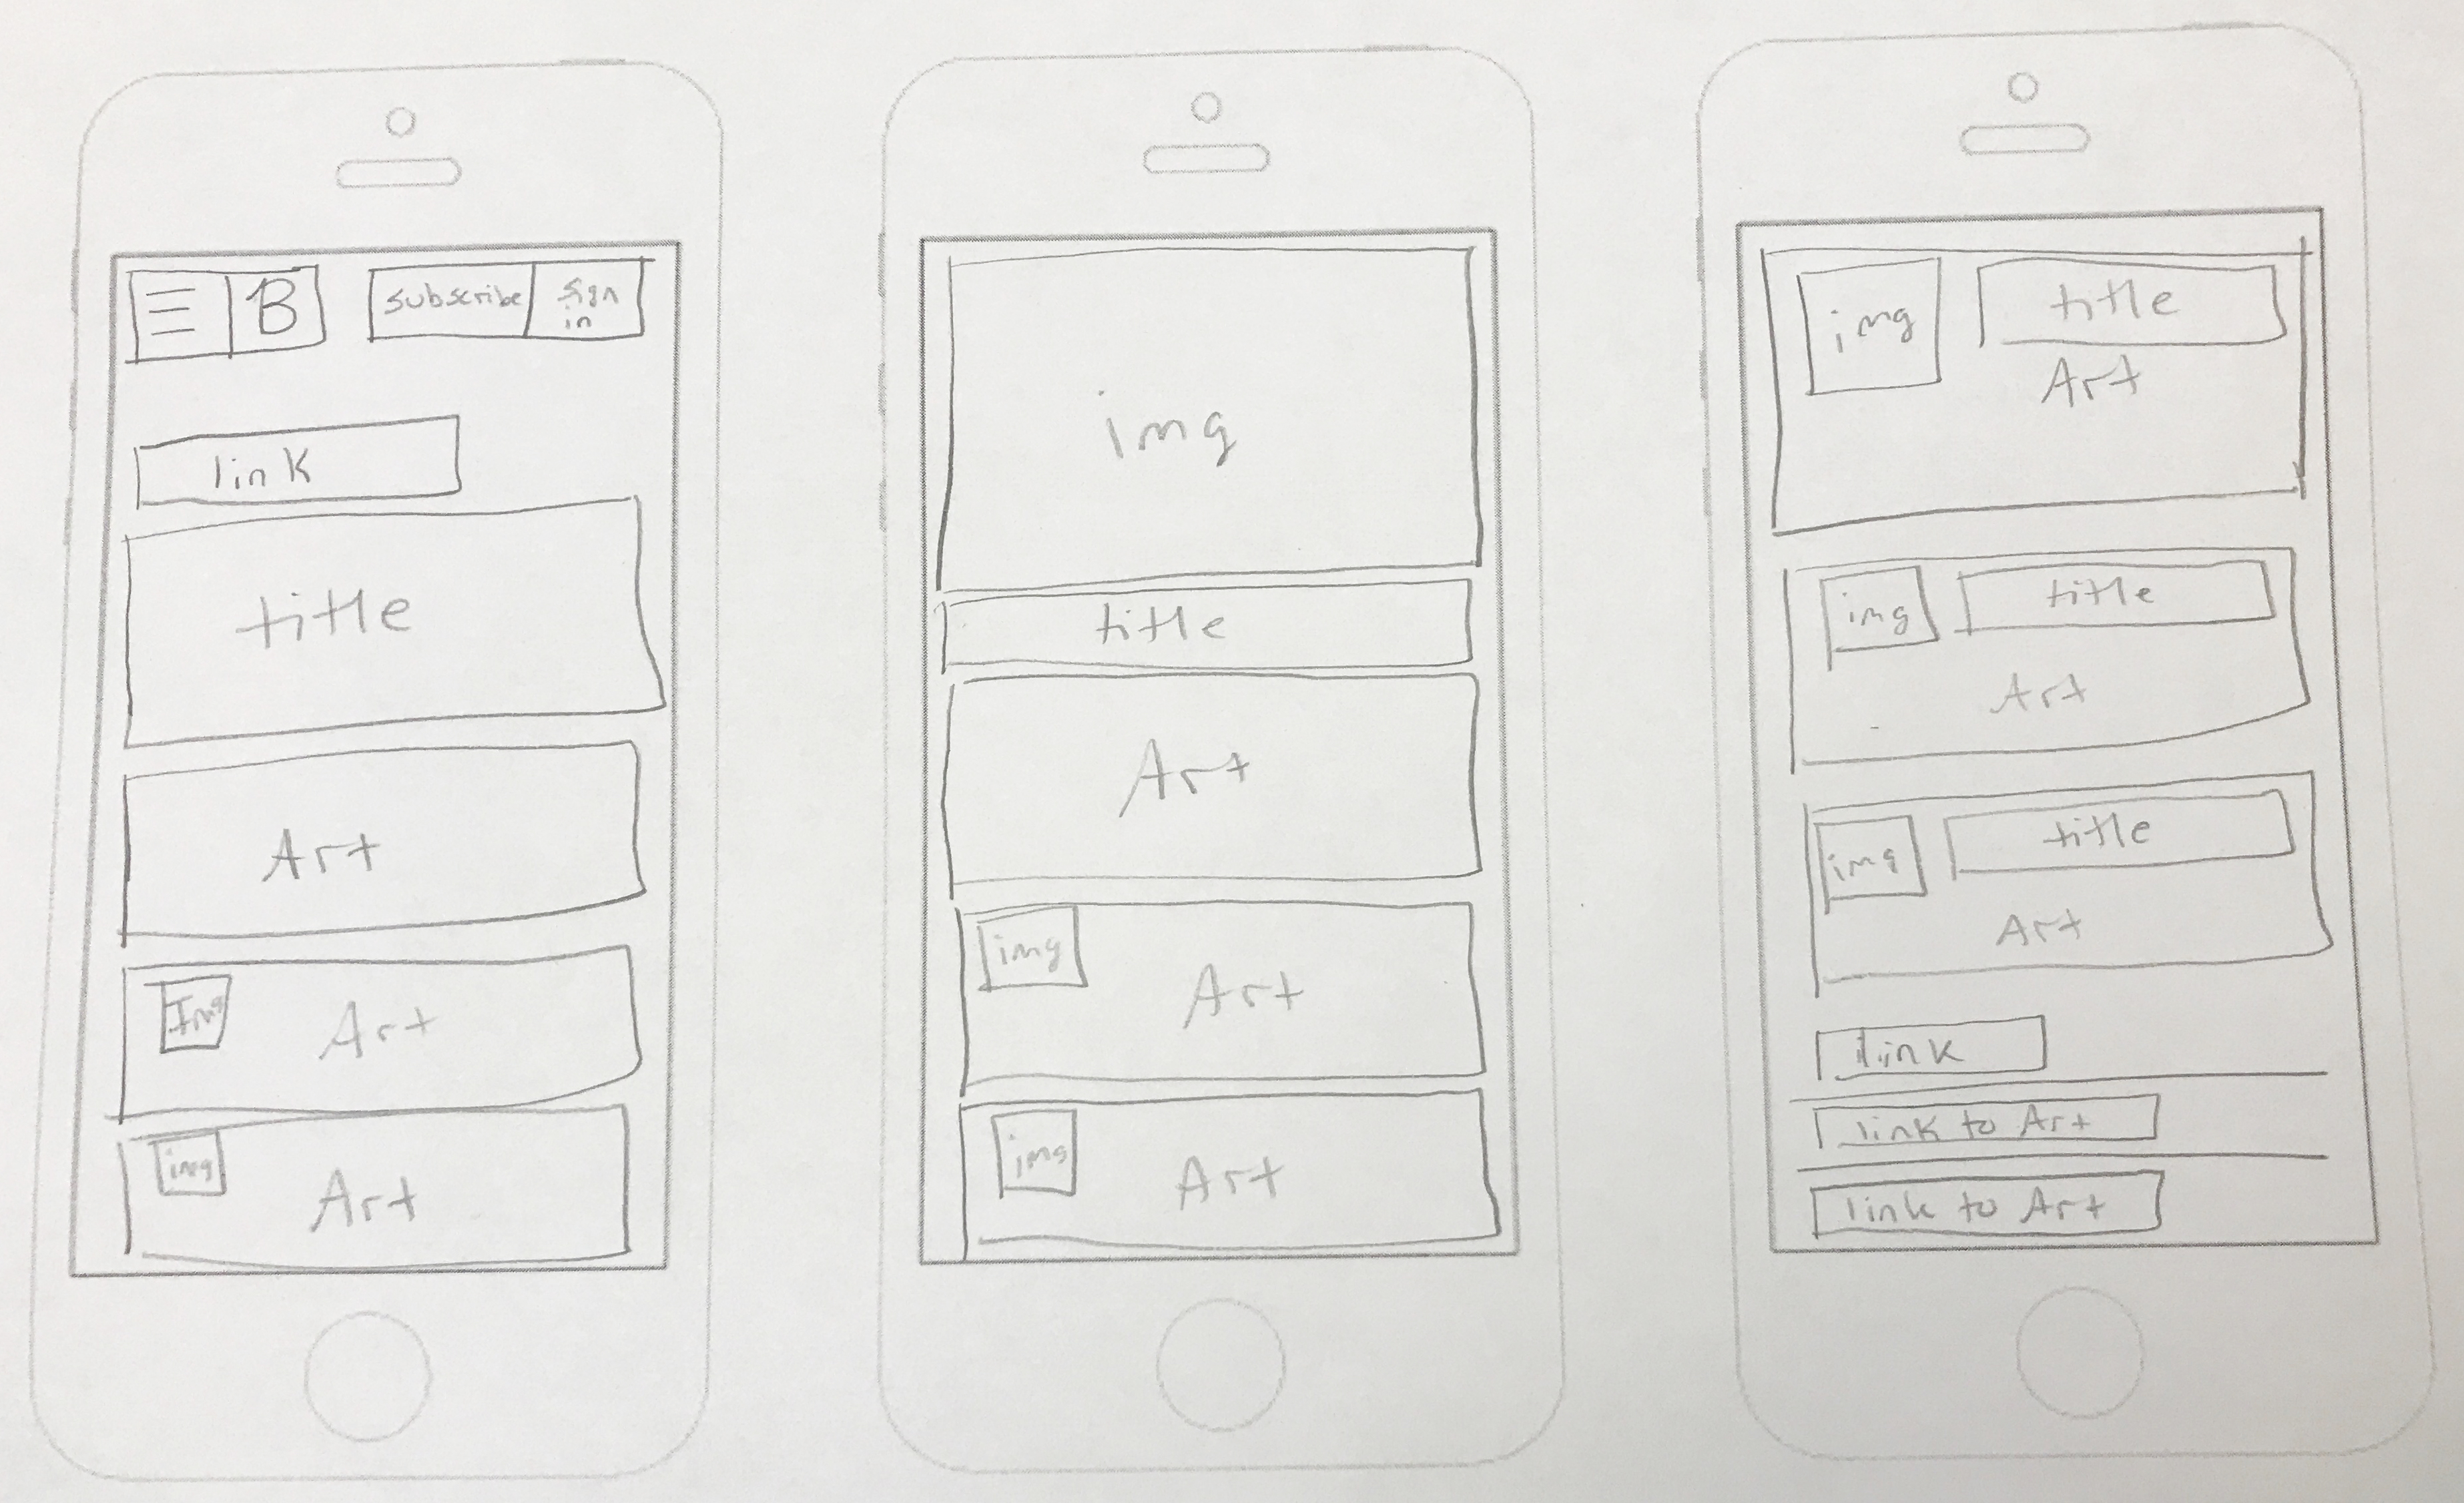 B subscribe sign
in
link
title
Art
Img
Art
img
Art
img
title
Art
img
Art
img
Art
img title
Art
img title
Art
img title
Art
link
link to Art
link to Art